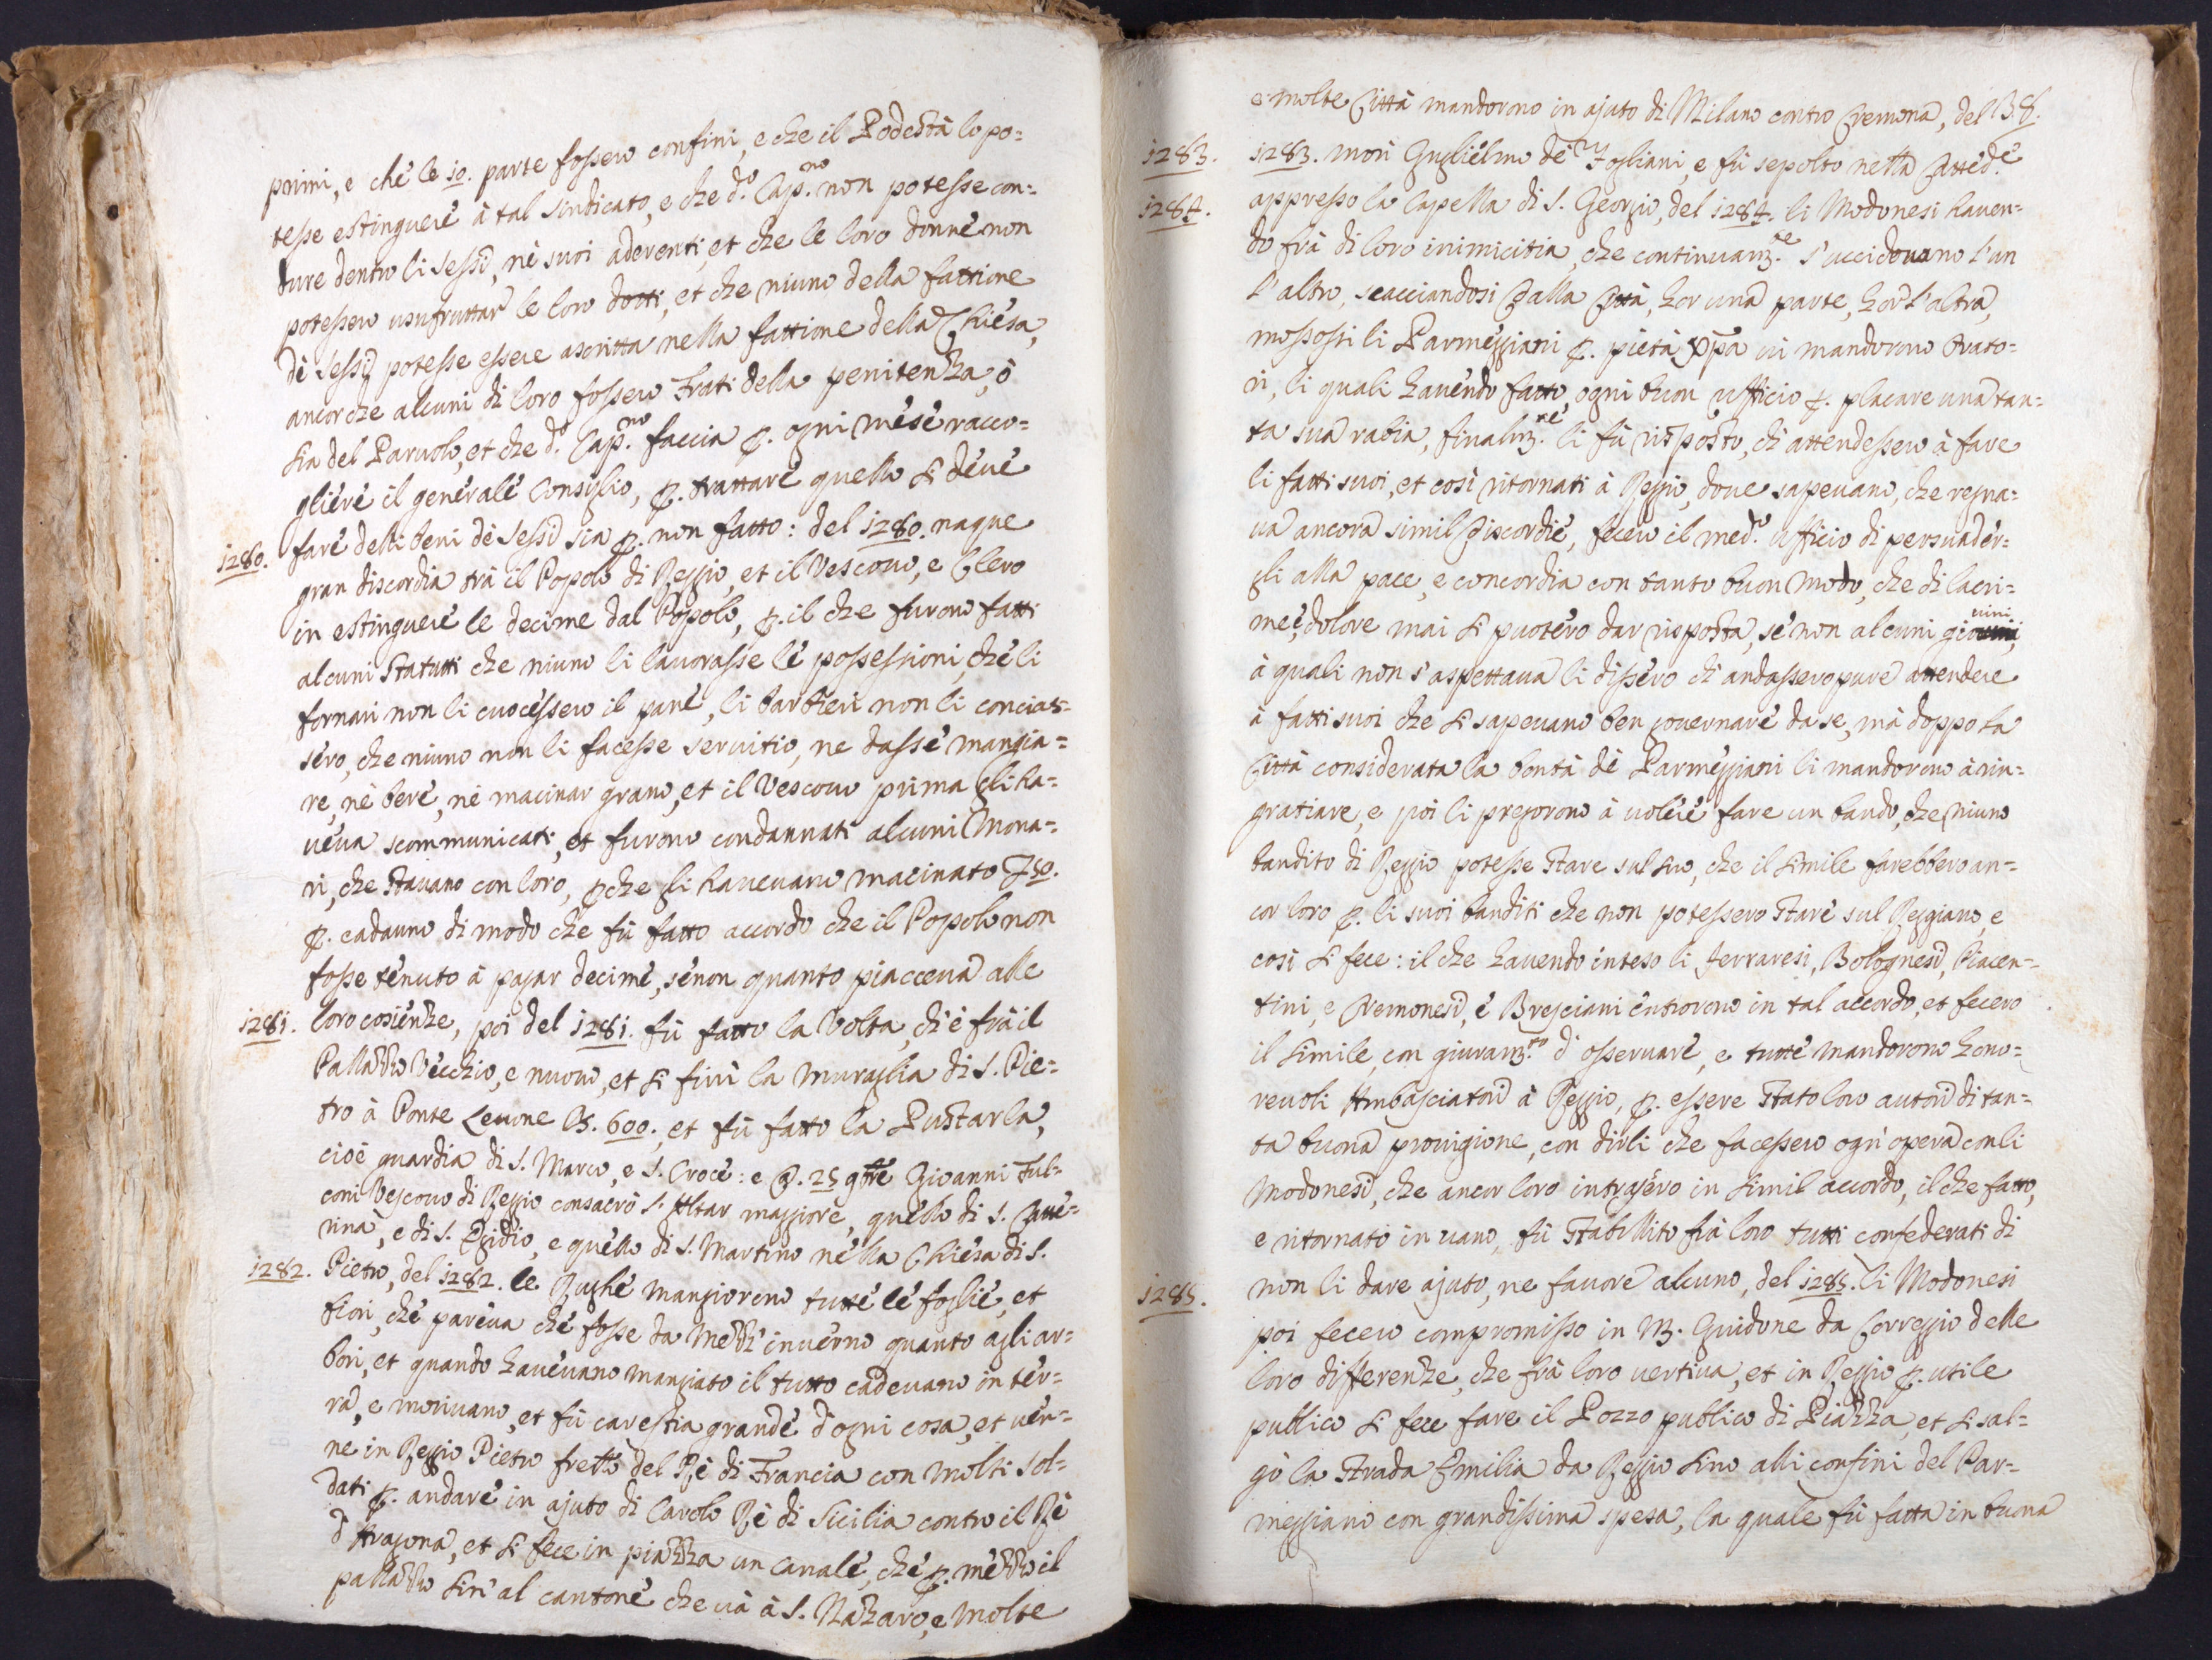 prini, e che le 10. parte fossero confini, e che il Podestà lo po=
tesse estinguere à tal sindicato, e che d.º Cap.no non potesse con=
dure dentro li Sessi, nè suoi aderenti, et che le loro donne non
potessero usufruttar le loro dotti, et che niuno della fattione
dè Sessij potesse essere ascritta nella fattione della Chiesa,
ancorche alcuni di loro fossero Frati della penitenza, ò
sia del Paruolo, et che d.º Cap.no faccia p. ogni mese racco=
gliere il generale Consiglio, p. trattare quello si deue
1280. fare delli beni de Sessi sia p. non fatto: del 1280. naque
gran discordia trà il Popolo di Reggio, et il Vescouo, e Clero
in estinguere le decime dal Popolo, p. il che furono fatti
alcuni Statutti che niuno li lauorasse le possessioni, che li
fornari non li cuocessero il pane, li barbieri non li concias=
sero, che niuno non li facesse seruitio, ne dasse mangia=
re, nè bere, nè macinar grano, et il Vescouo prima gli ha=
ueua scommunicati, et furono condannati alcuni Mona=
ri, che stauano con loro, pche gli haueuano macinato £50.
p. cadauno di modo che fù fatto accordo che il Popolo non
fosse tenuto à pagar decime, se non quanto piacceua alle
1281. loro cosienze, poi del 1281. fù fatto la Volta, ch'è frà il
Pallazzo Vecchio, e nuouo, et si finì la muraglia di S. Pie=
tro à Ponte Leuone B. 600., et fù fatto la Pustarla,
cioè guardia di S. Marco, e S. Croce: e @. 25 9bre Giovanni Ful=
coni Vescouo di Reggio consacrò l'Altar maggiore, quello di S. Catte=
rina, e di S. Egidio, e quello di S. Martino nella Chiesa di S.
1282. Pietro, del 1282. le Rughe mangiorono tutte le foglie, et
fiori, che pareua che fosse da mezz'inuerno quanto agli ar=
bori, et quando haueuano mangiato il tutto cadeuano in ter=
ra, e moriuano, et fù carestia grande d'ogni cosa, et uen=
ne in Reggio Pietro frello del Rè di Francia con molti sol=
dati p. andare in ajuto di Carolo Rè di Sicilia contro il Rè
d'Aragona, et si fece in piazza un canale, che p. mezzo il
pallazzo sin' al cantone che uà à S. Nazaro, e molte
e molte Città mandorono in ajuto di Milano contro Cremona, del B.8.
1283. 1283. morì Guglielmo de Fogliani, e fù sepolto nella Catted.e
1284. appresso la Capella di S. Georgio, del 1284. li Modonesi hauen=
do frà di loro inimicitia, che continuam.te s'uccideuano l'un
l'altro, scacciandosi dalla Città, hor una parte, hor l'altra,
mossossi li Parmeggiani p. pietà Xpa ui mandorono Orato=
ri, li quali hauendo fatto ogni buon ufficio p. placare una tan=
ta sua rabia, finalm.te li fù risposto, ch'attendessero à fare
li fatti suoi, et così ritornati à Reggio, doue sapeuano, che regna=
ua ancora simil discordie, fecero il med.º ufficio di persuader=
gli alla pace, e concordia con tanto buon modo, che di lacri=
me, e dolore mai si puotero dar risposta, se non alcuni giouini,
à quali non s'aspettaua li dissero ch'andassero pure attendere
à fatti suoi che si sapeuano ben gouernare da se, mà doppo la
Città considerata la bontà dè Parmeggiani li mandorono à rin=
gratiare, e poi li pregorono à uolere fare un bando, che niuno
bandito di Reggio potesse stare sul suo, che il simile farebbero an=
cor loro p. li suoi banditi che non potessero stare sul Reggiano, e
così si fece: il che hauendo inteso li Ferraresi, Bolognesi, Piacen=
tini, e Cremonesi, e Bresciani entrorono in tal accordo, et fecero
il simile, con giuram.to d'osseruare, e tutte mandorono hono=
reuoli Ambasciatori à Reggio, p. essere stato loro autori di tan=
ta buona prouigione, con dirli che facessero ogn'opera con li
Modonesi, che ancor loro intrassero in simil accordo, il che fatto,
e ritornato in uano, fù stabillito frà loro tutti confederati di
1285. non li dare ajuto, ne fauore alcuno, del 1285. li Modonesi
poi fecero compromisso in M. Guidone da Correggio delle
loro differenze, che frà loro uertiua, et in Reggio p. utile
publico si fece fare il Pozzo publico di Piazza, et si sal=
gò la strada Emilia da Reggio sino alli confini del Par=
meggiano con grandissima spesa, la quale fù fatta in buona